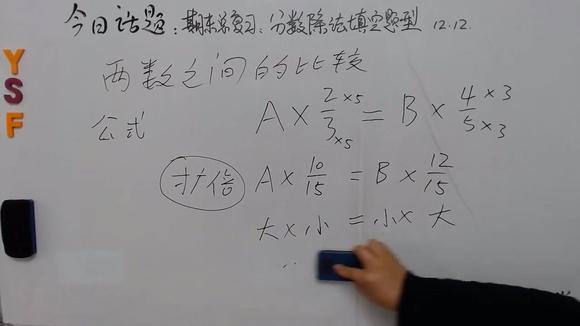 今日话题:期末总复习:分数除法填空题型 12.12.
YSF
两数之间的比较
公式 A×2/3 ×5 ×5 = B×4/5 ×3 ×3
扩倍 A×10/15 = B×12/15
大×小 = 小×大